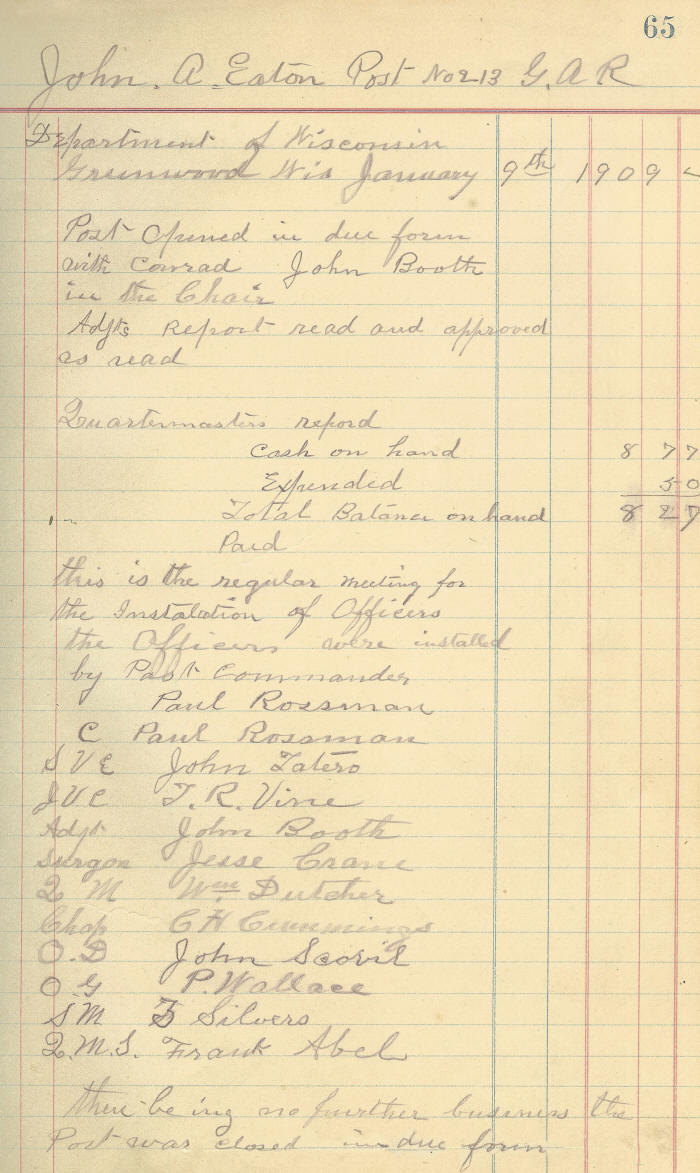 65
John. A. Eaton Post No 213 G. A R
Department of Wisconsin
Greenwood Wis January 9th 1909
Post Opened in due form
with Conrad John Booth
in the Chair
Adjts Report read and approved
as read
Quartermasters repord
Cash on hand 8 77
Expended 50
Total Balance on hand 8 27
Paid
this is the regular meeting for
the Instalation of Officers
the Officers were installed
by Past Commander
Paul Rossman
C Paul Rossman
S V C John
J V C T. R. Vine
Adjt John Booth
Surgon Jesse Crane
Q M Wm Dutcher
Chap C H Cummings
O. D John Scovil
O G P. Wallace
S M Silvers
Q. M. S. Frank Abel
there being no further business the
Post was closed in due form